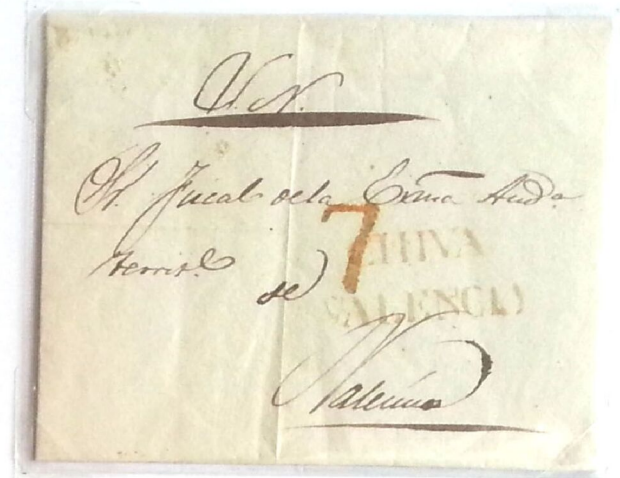 S. N.
Sr. Fiscal de la Exma Auda
territl
7
CHIVA
de
VALENCIA
Valencia